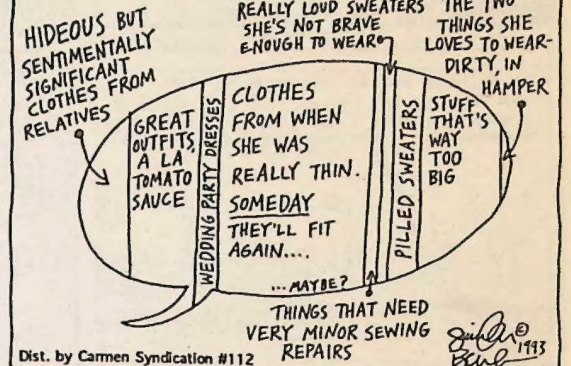 HIDEOUS BUT
SENTIMENTALLY
SIGNIFICANT
CLOTHES FROM
RELATIVES
REALLY LOUD SWEATERS
SHE'S NOT BRAVE
ENOUGH TO WEAR
THE TWO
THINGS SHE
LOVES TO WEAR-
DIRTY, IN
HAMPER
GREAT
OUTFITS,
A LA
TOMATO
SAUCE
WEDDING PARTY DRESSES
CLOTHES
FROM WHEN
SHE WAS
REALLY THIN.
SOMEDAY
THEY'LL FIT
AGAIN....
...MAYBE?
PILLED SWEATERS
STUFF
THAT'S
WAY
TOO
BIG
THINGS THAT NEED
VERY MINOR SEWING
REPAIRS
Dist. by Carmen Syndication #112
© 1993